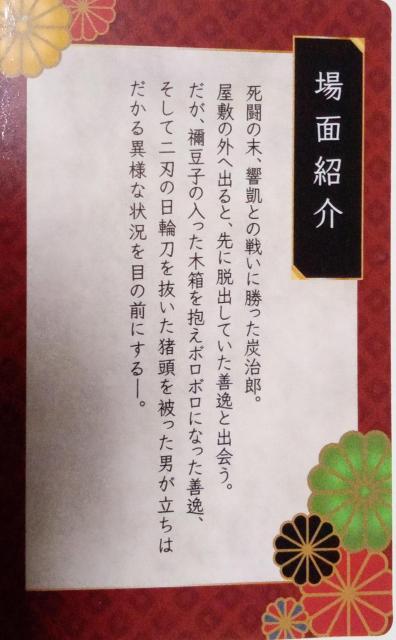 場面紹介
死闘の末、響凱との戦いに勝った炭治郎。
屋敷の外へ出ると、先に脱出していた善逸と出会う。
だが、禰豆子の入った木箱を抱えボロボロになった善逸、
そして二刃の日輪刀を抜いた猪頭を被った男が立ちは
だかる異様な状況を目の前にする―。